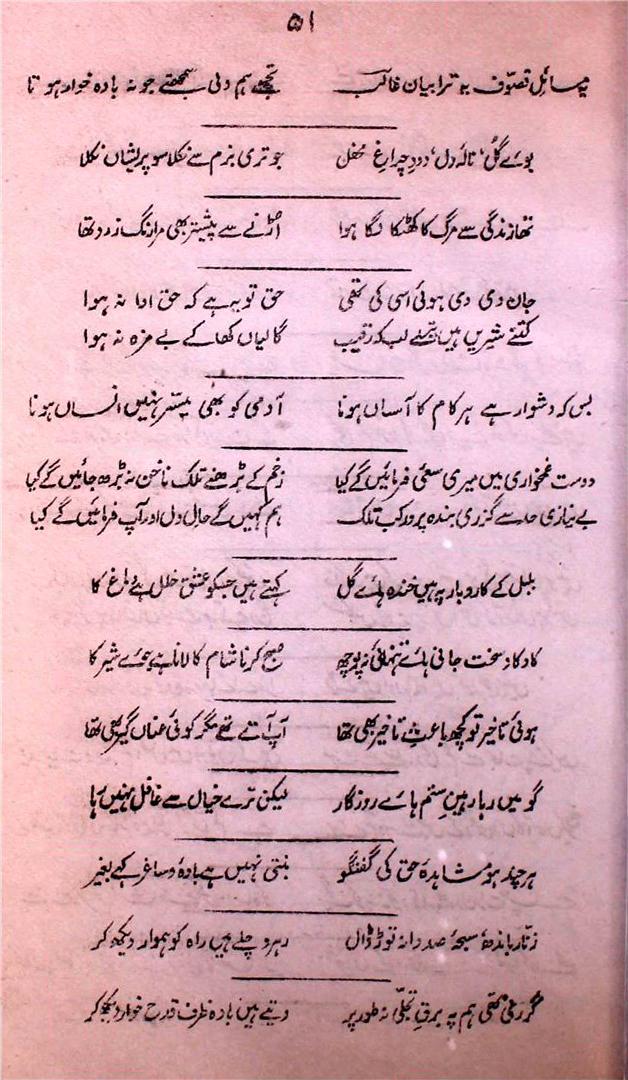 ۵۱
یہ مسائلِ تصوّف یہ ترا بیان غالب تجھے ہم ولی سمجھتے جو نہ بادہ خوار ہوتا
بوئے گُل، نالۂ دل، دودِ چراغِ محفل جو تری بزم سے نکلا سو پریشاں نکلا
تھا زندگی سے مرگ کا کھٹکا لگا ہوا اڑنے سے پیشتر بھی مرا رنگ زرد تھا
جان دی دی ہوئی اسی کی تھی حق تو یہ ہے کہ حق ادا نہ ہوا
کتنے شیریں ہیں تیرے لب کہ رقیب گالیاں کھا کے بے مزہ نہ ہوا
بس کہ دشوار ہے ہر کام کا آساں ہونا آدمی کو بھی میسّر نہیں انساں ہونا
دوست غمخواری میں میری سعی فرمائیں گے کیا زخم کے بڑھنے تلک ناخن نہ بڑھ جائیں گے کیا
بے نیازی حد سے گزری بندہ پرور کب تلک ہم کہیں گے حالِ دل اور آپ فرمائیں گے کیا
بلبل کے کاروبار پہ ہیں خندہ ہائے گل کہتے ہیں جسکو عشق خلل ہے دماغ کا
کاو کاوِ سخت جانی ہائے تنہائی نہ پوچھ صبح کرنا شام کا لانا ہے جوئے شیر کا
ہوئی تاخیر تو کچھ باعثِ تاخیر بھی تھا آپ آتے تھے مگر کوئی عناں گیر بھی تھا
گو میں رہا رہینِ ستم ہائے روزگار لیکن ترے خیال سے غافل نہیں رہا
ہر چند ہو مشاہدۂ حق کی گفتگو بنتی نہیں ہے بادہ و ساغر کہے بغیر
زنّار باندھ سبحۂ صد دانہ توڑ ڈال رہرو چلے ہیں راہ کو ہموار دیکھ کر
گرنی تھی ہم پہ برقِ تجلّی نہ طور پر دیتے ہیں بادہ ظرفِ قدح خوار دیکھ کر